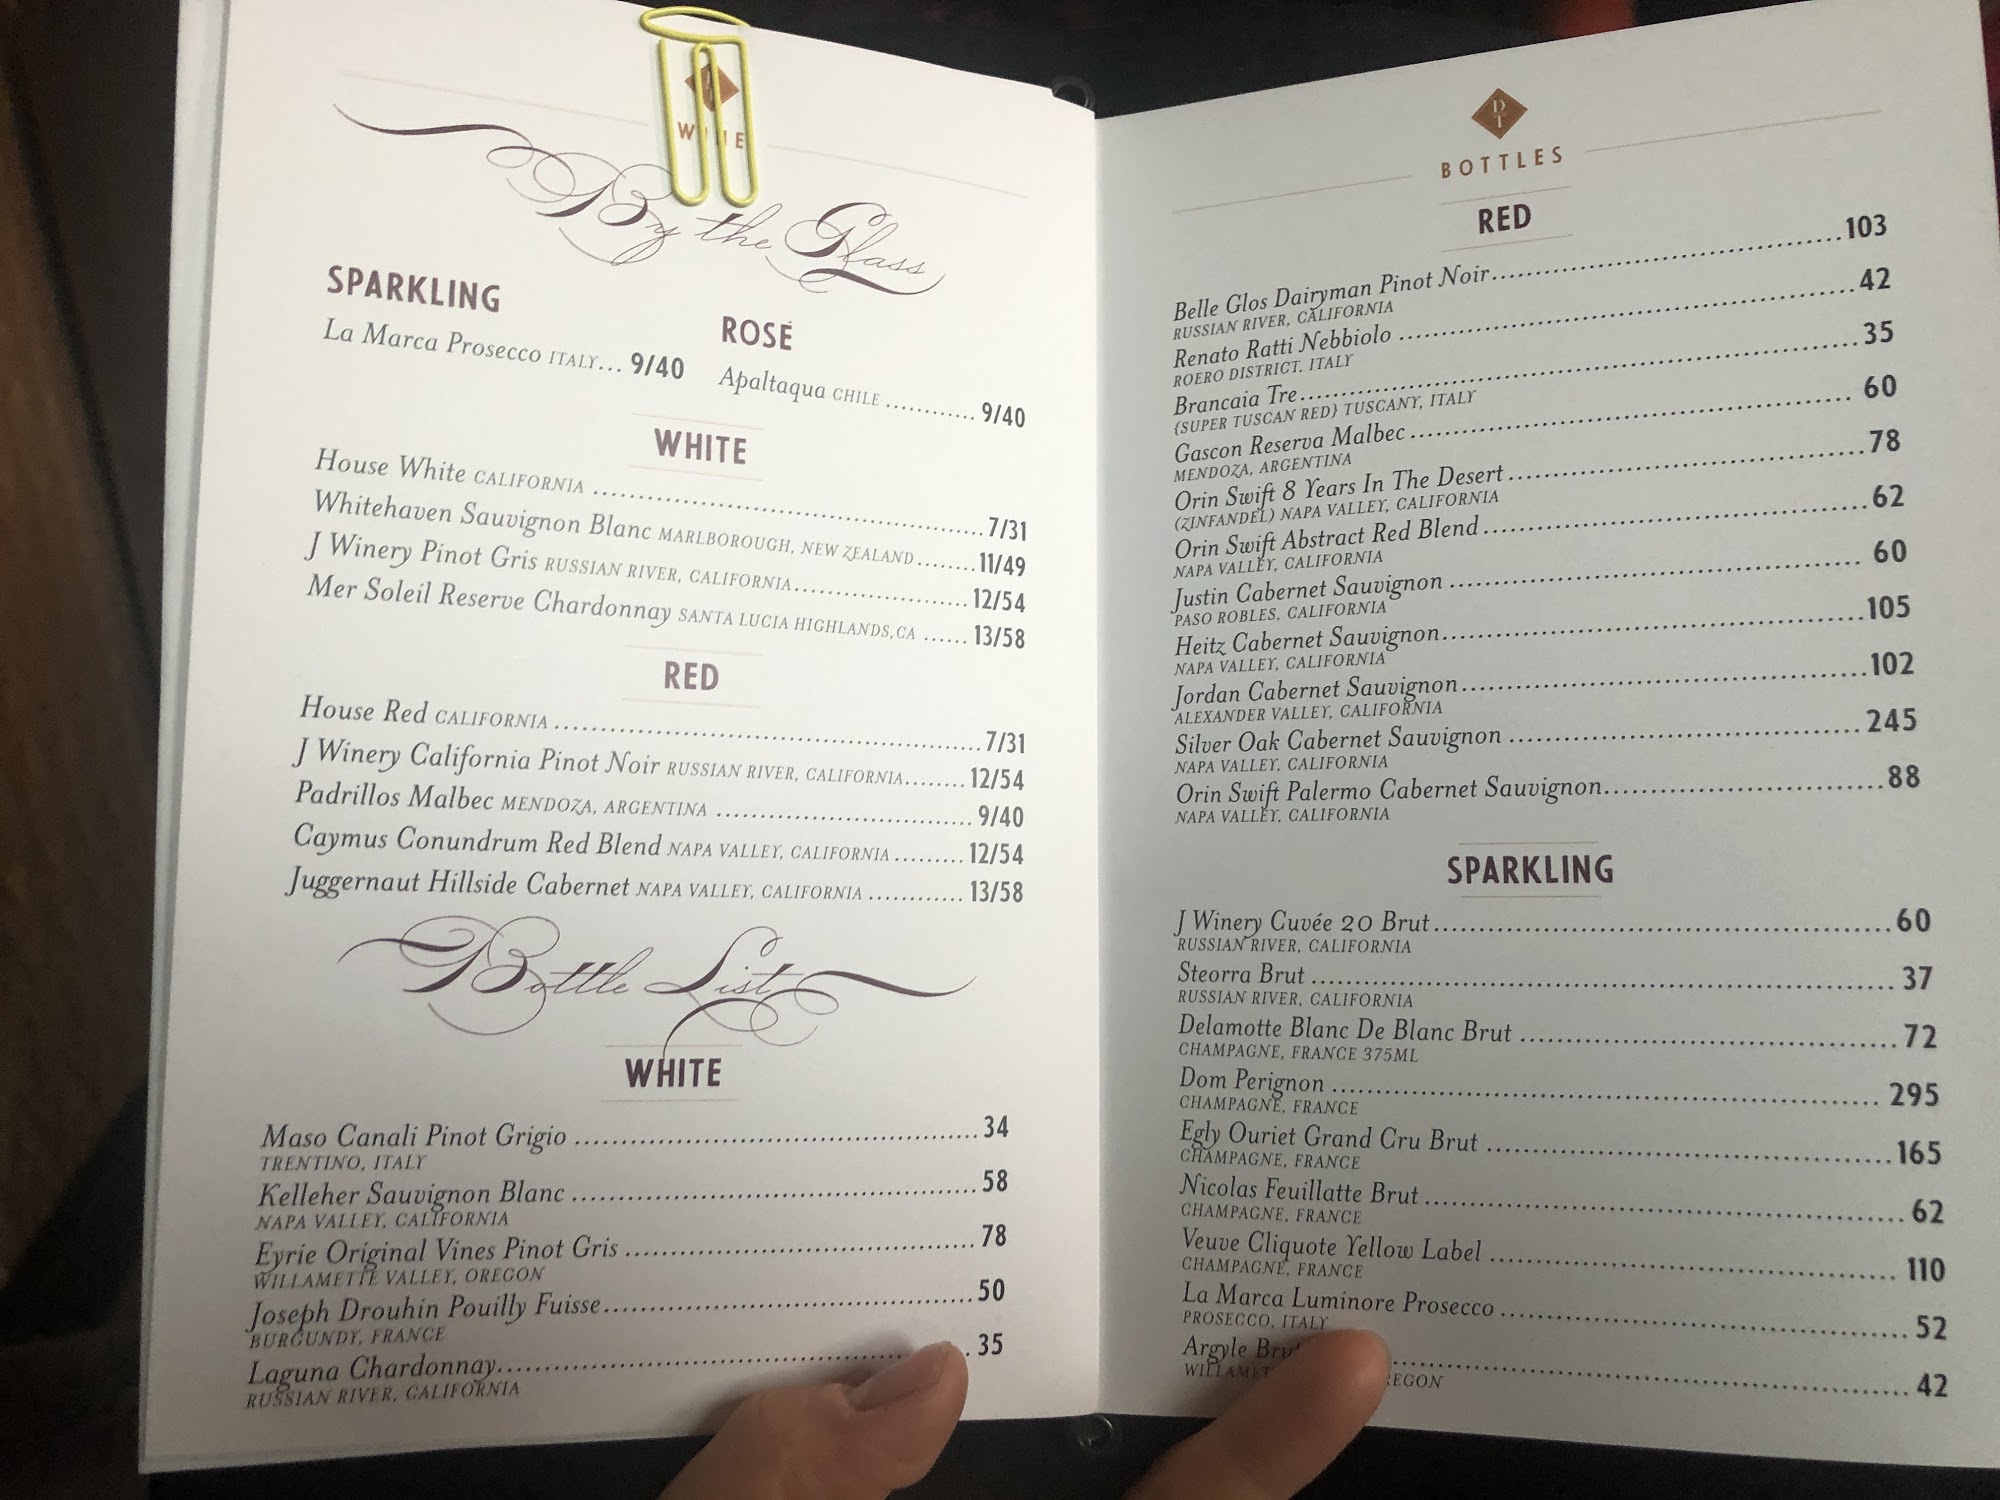 WINE
By the Glass
SPARKLING
La Marca Prosecco ITALY... 9/40
ROSÉ
Apaltaqua CHILE ............ 9/40
WHITE
House White CALIFORNIA ........ 7/31
Whitehaven Sauvignon Blanc MARLBOROUGH, NEW ZEALAND ........ 11/49
J Winery Pinot Gris RUSSIAN RIVER, CALIFORNIA ........ 12/54
Mer Soleil Reserve Chardonnay SANTA LUCIA HIGHLANDS, CA ...... 13/58
RED
House Red CALIFORNIA ........ 7/31
J Winery California Pinot Noir RUSSIAN RIVER, CALIFORNIA ........ 12/54
Padrillos Malbec MENDOZA, ARGENTINA ........ 9/40
Caymus Conundrum Red Blend NAPA VALLEY, CALIFORNIA ......... 12/54
Juggernaut Hillside Cabernet NAPA VALLEY, CALIFORNIA ............ 13/58
Bottle List
WHITE
Maso Canali Pinot Grigio ........ 34
TRENTINO, ITALY
Kelleher Sauvignon Blanc ........ 58
NAPA VALLEY, CALIFORNIA
Eyrie Original Vines Pinot Gris ........ 78
WILLAMETTE VALLEY, OREGON
Joseph Drouhin Pouilly Fuisse ........ 50
BURGUNDY, FRANCE
Laguna Chardonnay ........ 35
RUSSIAN RIVER, CALIFORNIA
DT
BOTTLES
RED
Belle Glos Dairyman Pinot Noir ........ 103
RUSSIAN RIVER, CALIFORNIA
Renato Ratti Nebbiolo ........ 42
ROERO DISTRICT, ITALY
Brancaia Tre ........ 35
{SUPER TUSCAN RED} TUSCANY, ITALY
Gascon Reserva Malbec ........ 60
MENDOZA, ARGENTINA
Orin Swift 8 Years In The Desert ........ 78
(ZINFANDEL) NAPA VALLEY, CALIFORNIA
Orin Swift Abstract Red Blend ........ 62
NAPA VALLEY, CALIFORNIA
Justin Cabernet Sauvignon ........ 60
PASO ROBLES, CALIFORNIA
Heitz Cabernet Sauvignon ........ 105
NAPA VALLEY, CALIFORNIA
Jordan Cabernet Sauvignon ........ 102
ALEXANDER VALLEY, CALIFORNIA
Silver Oak Cabernet Sauvignon ........ 245
NAPA VALLEY, CALIFORNIA
Orin Swift Palermo Cabernet Sauvignon ........ 88
NAPA VALLEY, CALIFORNIA
SPARKLING
J Winery Cuvée 20 Brut ........ 60
RUSSIAN RIVER, CALIFORNIA
Steorra Brut ........ 37
RUSSIAN RIVER, CALIFORNIA
Delamotte Blanc De Blanc Brut ........ 72
CHAMPAGNE, FRANCE 375ML
Dom Perignon ........ 295
CHAMPAGNE, FRANCE
Egly Ouriet Grand Cru Brut ........ 165
CHAMPAGNE, FRANCE
Nicolas Feuillatte Brut ........ 62
CHAMPAGNE, FRANCE
Veuve Cliquote Yellow Label ........ 110
CHAMPAGNE, FRANCE
La Marca Luminore Prosecco ........ 52
PROSECCO, ITALY
Argyle Brut ........ 42